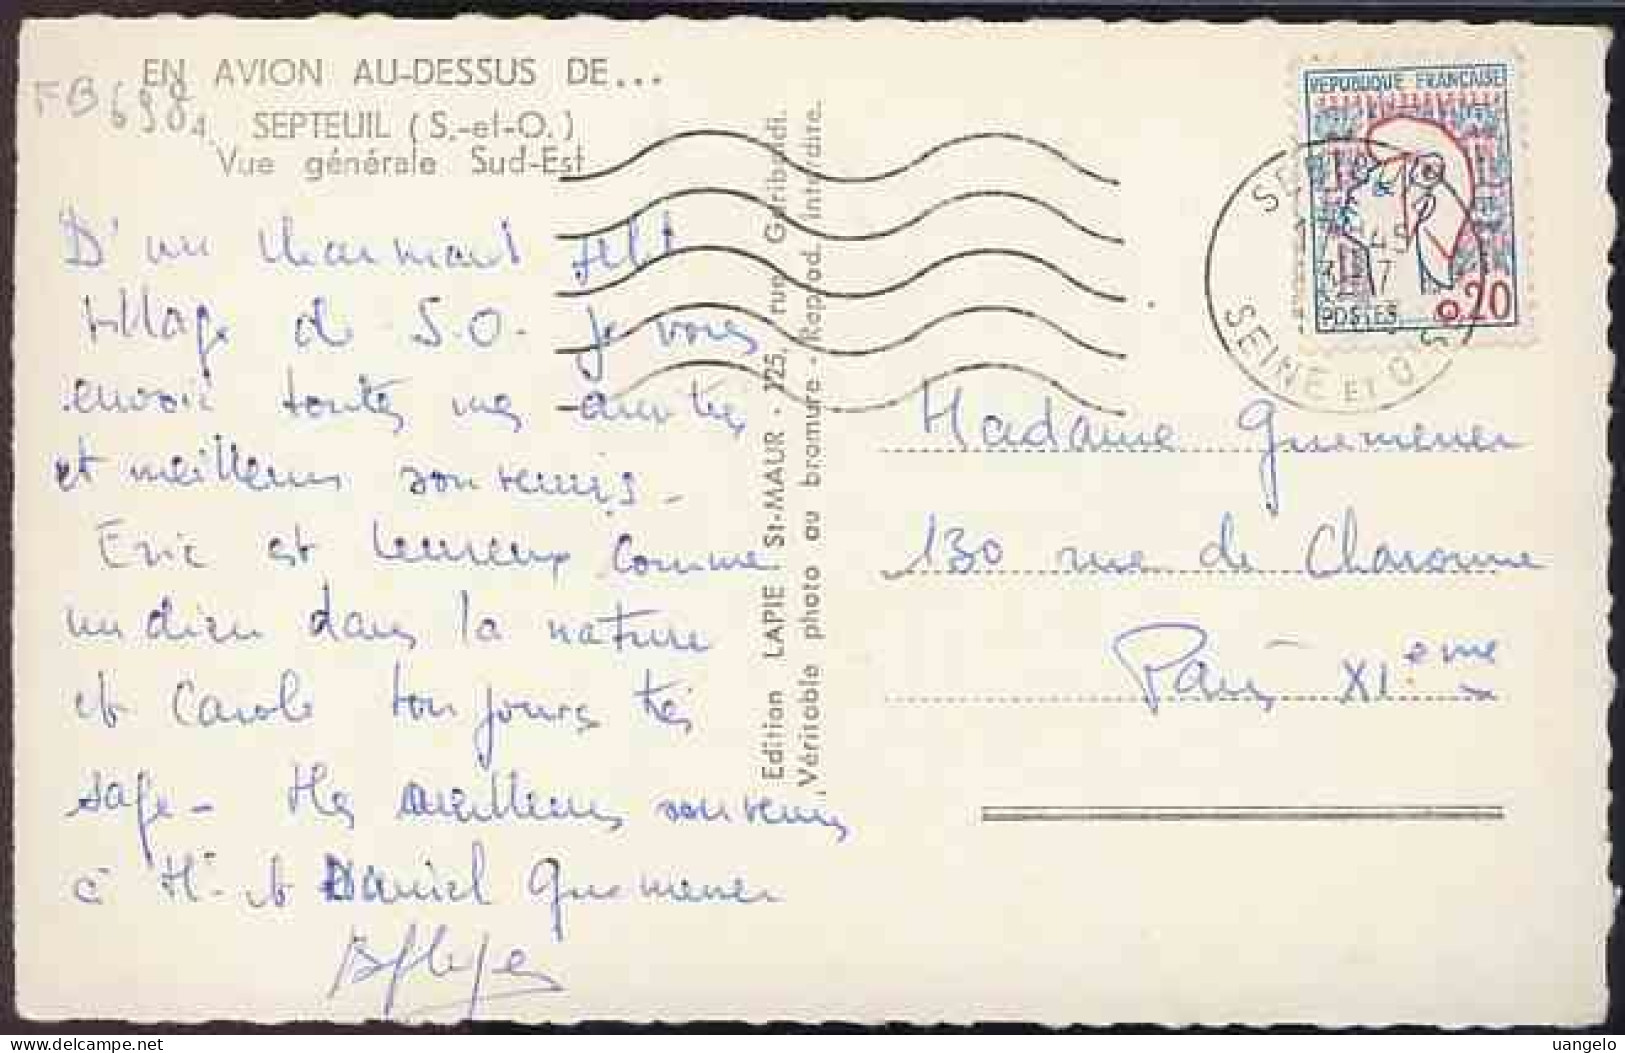 EN AVION AU-DESSUS DE...
FB 698
4. SEPTEUIL (S.-et-O.)
Vue générale Sud-Est
D'un charmant petit
village de S.O. je vous
envoie toutes mes amitiés
et meilleurs souvenirs.
Eric est heureux comme
un dieu dans la nature
et Carole toujours très
sage - Mes meilleurs souvenirs
à Mr et Daniel Guemener
Edition LAPIE St-MAUR - 225, rue Garibaldi.
Véritable photo au bromure - Reprod. interdite.
REPUBLIQUE FRANÇAISE
POSTES 0,20
SE
45
7
SEINE ET O
Madame Guemener
130 rue de Charonne
Paris XIeme
uangelo